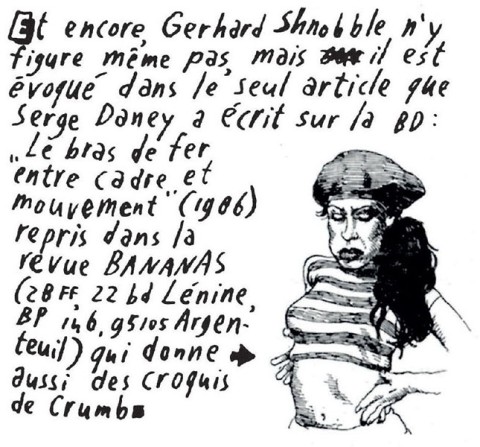 Et encore, Gerhard Shnobble n'y
figure même pas, mais il est
évoqué dans le seul article que
Serge Daney a écrit sur la BD :
„Le bras de fer
entre cadre et
mouvement" (1986)
repris dans la
revue BANANAS
(28 FF, 22 bd Lénine,
BP 146, 95105 Argen-
teuil) qui donne
aussi des croquis
de Crumb